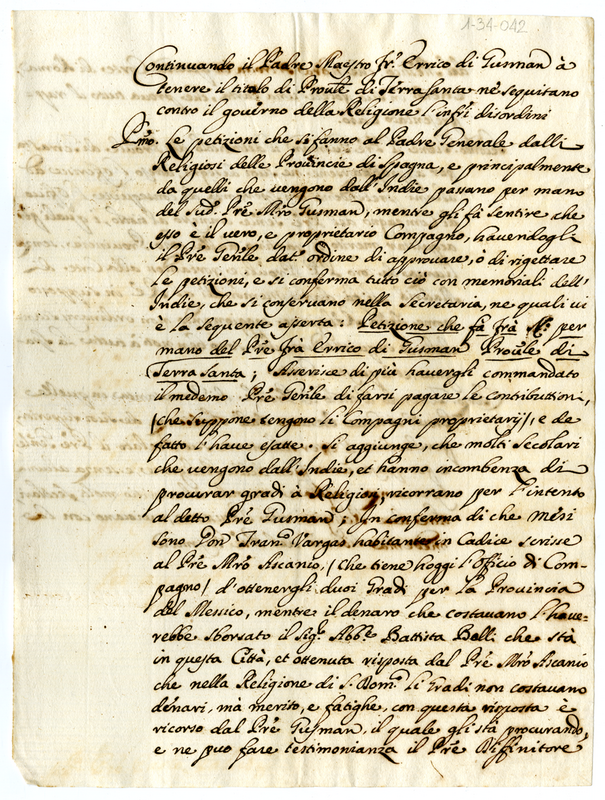 1-34-042
Continuando il Padre Maestro fr. Errico di Gusman à
tenere il titolo di Proule di Terra Santa nè seguitano
contro il governo della Religione l'infri disordini
Pmo. Le petizioni che si fanno al Padre Generale dalli
Religiosi delle Provincie di Spagna, e principalmente
da quelli che vengono dall'Indie passano per mano
del sud. Pre Mro Gusman, mentre gli fà sentire che
esso è il vero, e proprietario Compagno, havendogli
il Pre Gnrle dat' ordine di approuare, ò di rigettare
le petizioni, e si conferma tutto ciò con memoriali dell'
Indie, che si conservano nella Secretaria, ne quali vi
è la sequente asserta: Petizione che fà frà N. per
mano del Pre frà Errico di Gusman Proule di
Terra Santa; Asserisce di più havergli commandato
il medemo Pre Gnrle di farsi pagare le contributioni,
/che suppone tengono li Compagni proprietarij/, e de
fatto l'have esatte. Si aggiunge, che molti secolari
che vengono dall'Indie, et hanno incombenza di
procurar gradi à Religiosi, ricorrano per l'intento
al detto Pre Gusman; In conferma di che mesi
sono Don Fran. Vargas habitante in Cadice scrisse
al Pre Mro Ascanio, /che tiene hoggi l'officio di Com-
pagno/ d'ottenergli duoi Gradi per la Provincia
del Messico, mentre il denaro che costavano l'have-
rebbe sborsato il Sigr Abbe Battista Belli che stà
in questa Città, et ottenuta risposta dal Pre Mro Ascanio
che nella Religione di S. Dom. li Gradi non costavano
denari, mà merito, e fatighe, con questa risposta è
ricorso dal Pre Gusman, il quale gli stà procurando,
e ne puo fare testimonianza il Pre Diffinitore